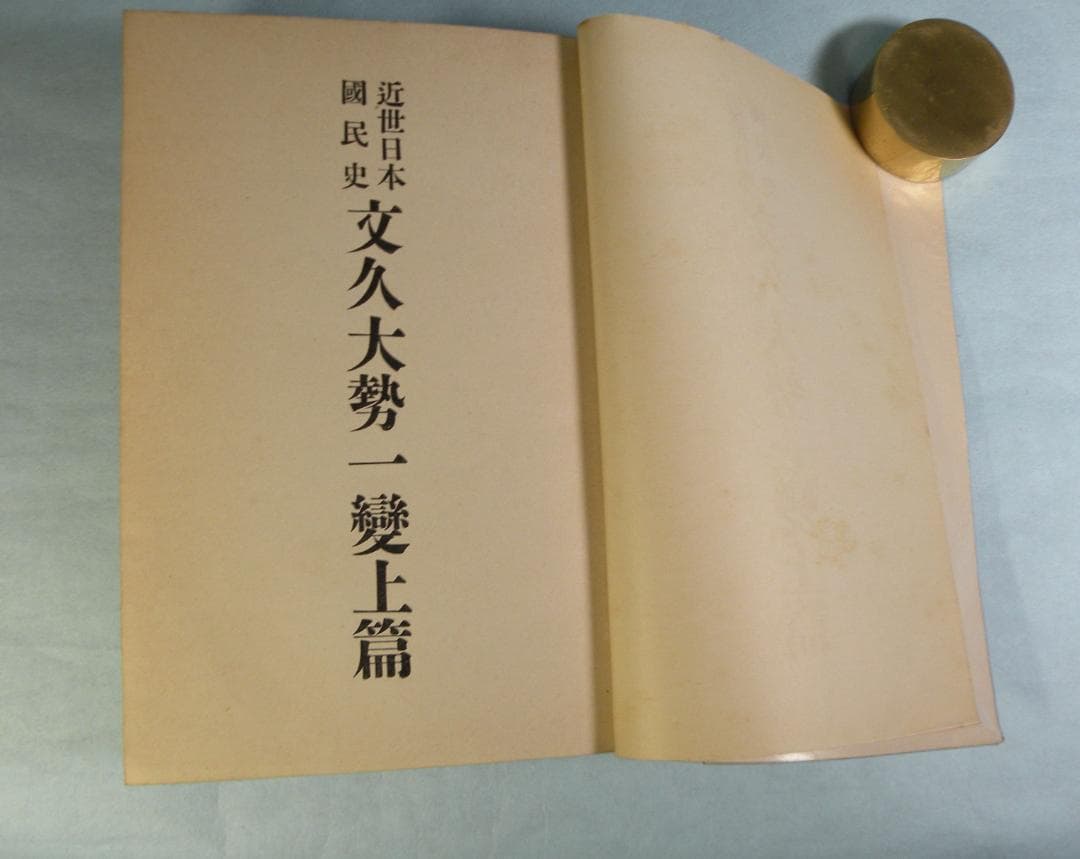 近世日本
國民史
文久大勢一變上篇